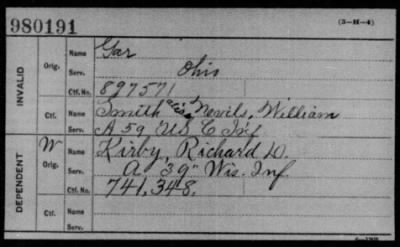 980191
(3-H-4)
INVALID
Orig.
Name Gar
Serv. Ohio
Ctf. No. 897571
Ctf.
Name Smith alias Nevils, William
Serv. A 59 US C Inf
DEPENDENT
W
Orig.
Name Kirby, Richard D.
Serv. A 39" Wis. Inf
Ctf. No. 741,348.
Ctf.
Name
Serv.